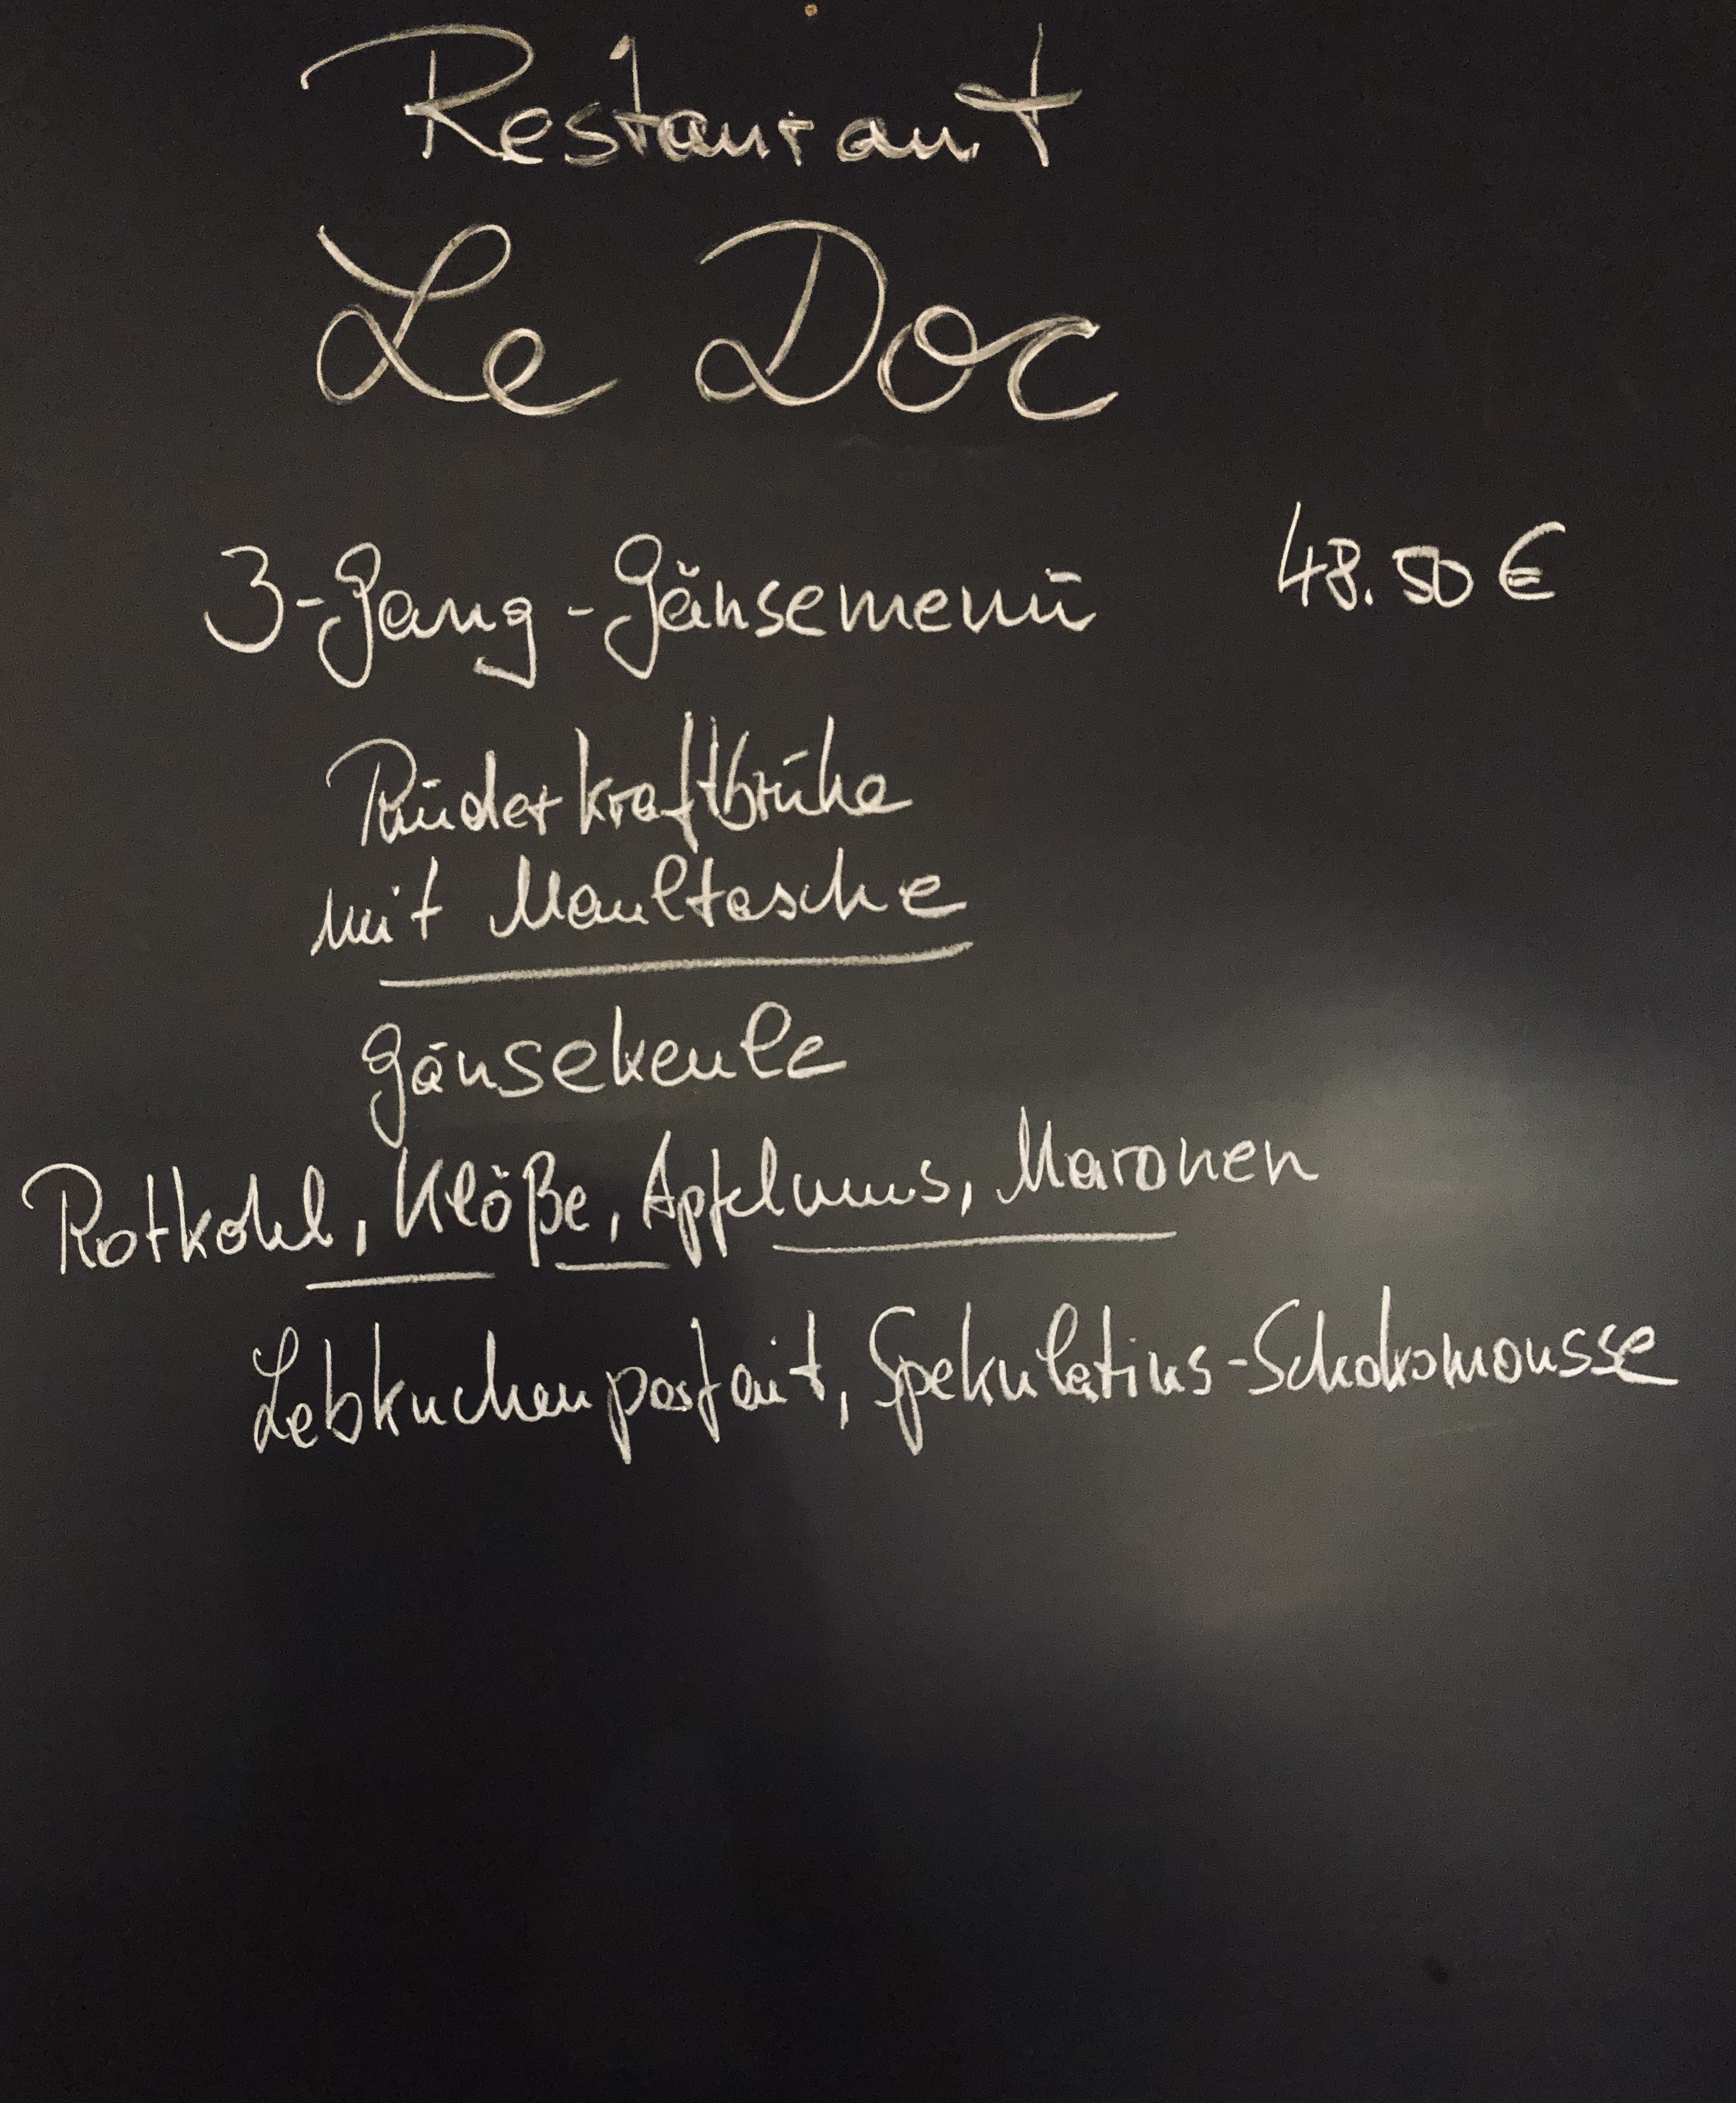 Restaurant
Le Doc
3-Gang-Gänsemenü 48.50 €
Rinderkraftbrühe
mit Maultasche
Gänsekeule
Rotkohl, Klöße, Apfelmus, Maronen
Lebkuchenparfait, Spekulatius-Schokomousse